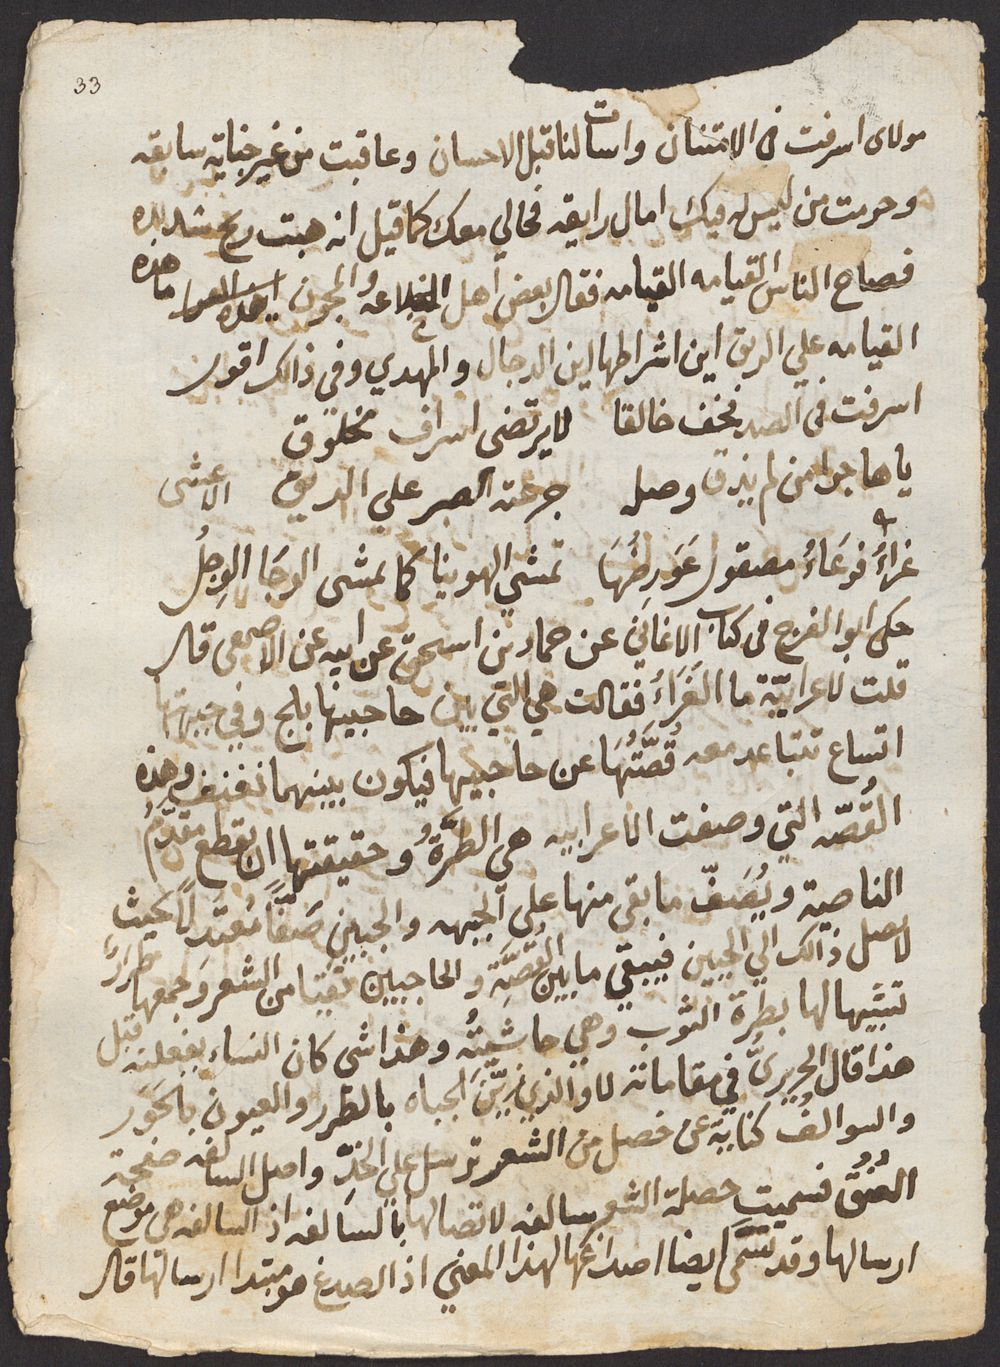 33
مولاى اسرفت فى الامتنان واسات لنا قبل الاحسان وعاقبت من غير جنايه سابقه
وحرمت من ليس له فيك امال رايقه فحالي معك كما قيل انه هبت ريح شديده
فصاح الناس القيامه القيامه فقال بعض اهل الخلاعه والمجون ما هذه
القيامه علي الريق اين اشراطها اين الدجال والمهدي وفى ذالك اقول
اسرفت فى الصد فخف خالقا لا يرتضى اسراف مخلوق
يا هاجرا من لم يذق وصل جرعته الصبر على الريق الاعشى
غرآءُ فرعَاءُ مصقول عَوَرضُهَا تمشي الهوينا كما يمشى الوجَا الوجِلُ
حكى ابو الفرج فى كتاب الاغاني عن حماد بن اسحق عن ابيه عن الاصمعى قال
قلت لاعرابيّة ما الغَرَاءُ فقالت هي التي بين حاجبيها بلج وفي جبهتها
اتساع تتباعد معه قُصَّتُهَا عن حاجبيها فيكون بينهما نفنف وهذه
القُصّه التي وصفت الاعرابيه هى الطُرَّةُ وحقيقتها ان يقطع مقدّمُ
الناصية ويُصَفّ ما بقى منها على الجبهه والجبين صَفًّا مُعتَدِلاً بحيث
لا يصل ذالك الي الجبين فيبقي ما بين القُصَّةِ والحاجبين نقيّا من الشعر وجمعها طُرَرٌ
تشبيها لها بطرة الثوب وهي حاشيتُه وهذا شى كان النساء يفعلنه قبل
هذا قال الحريريُّ في مقاماته لا والذي زيّن الجباه بالطُرر والعيون بالحَوَر
والسوالفُ كنايةٌ عن خصل من الشعر ترسل علي الخدِّ واصل السالفه صفحة
العُنُق فسميت خصلة الشعر سالفه لاتصالها بالسالفه اذ السالفه هى موضع
ارسالها وقد تسَمّى ايضا اصداغها لهذا المعني اذ الصدغ هو مبتدا ارسالها قال